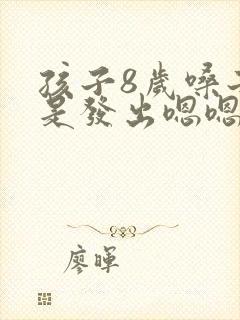 孩子8歲嗓
是發出嗯嗯
廖暉